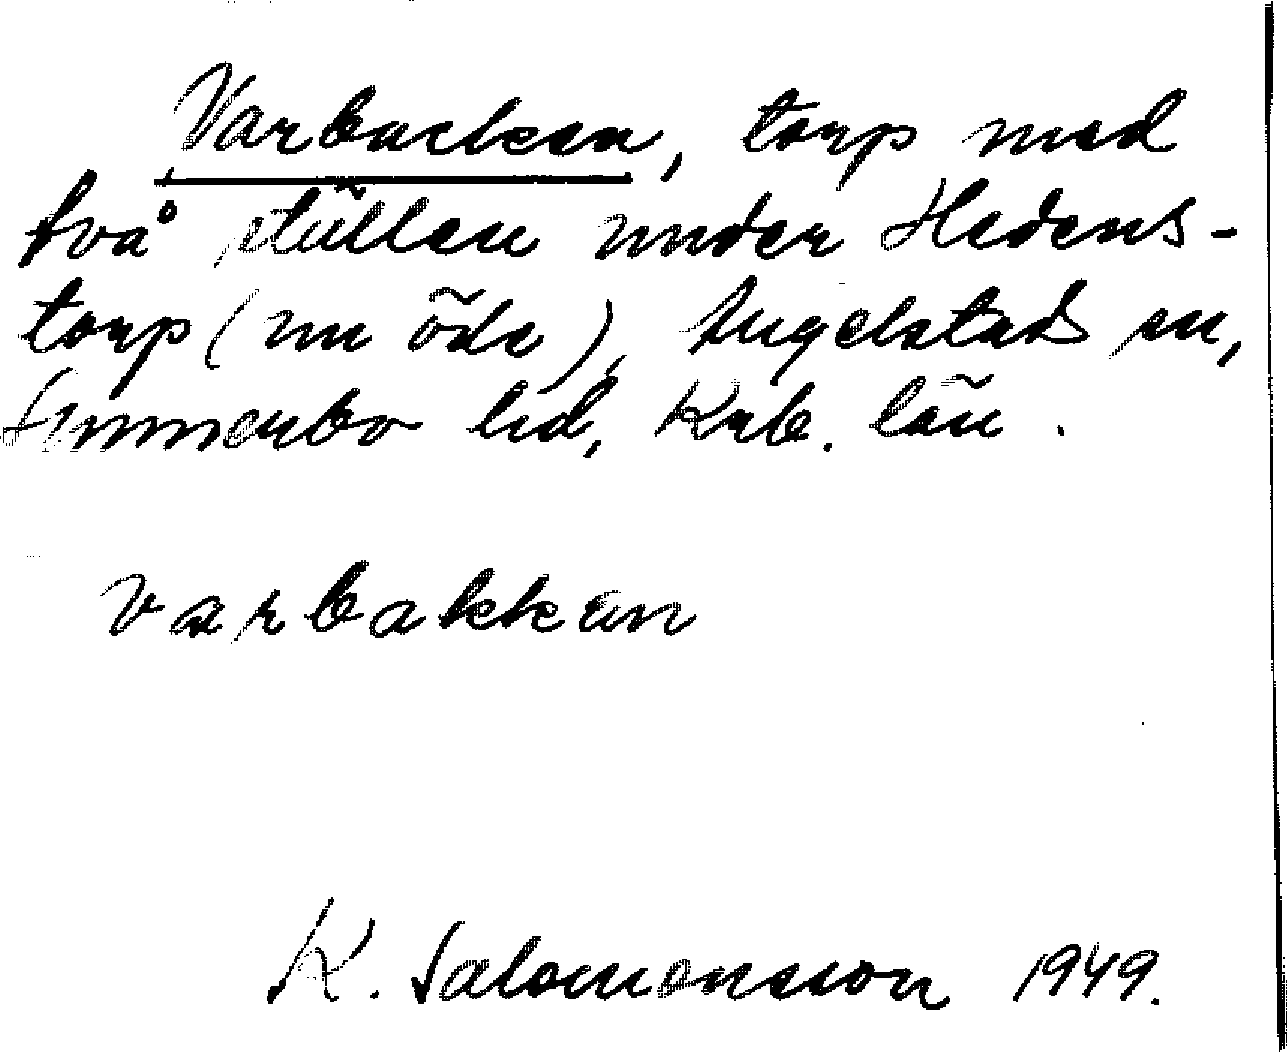 Varbacken, torp med
två ställen under Hedens-
torp (nu öde), Angelstad sn,
Sunnerbo hd, Krb. län.
varbakkan
K. Salomonsson 1949.